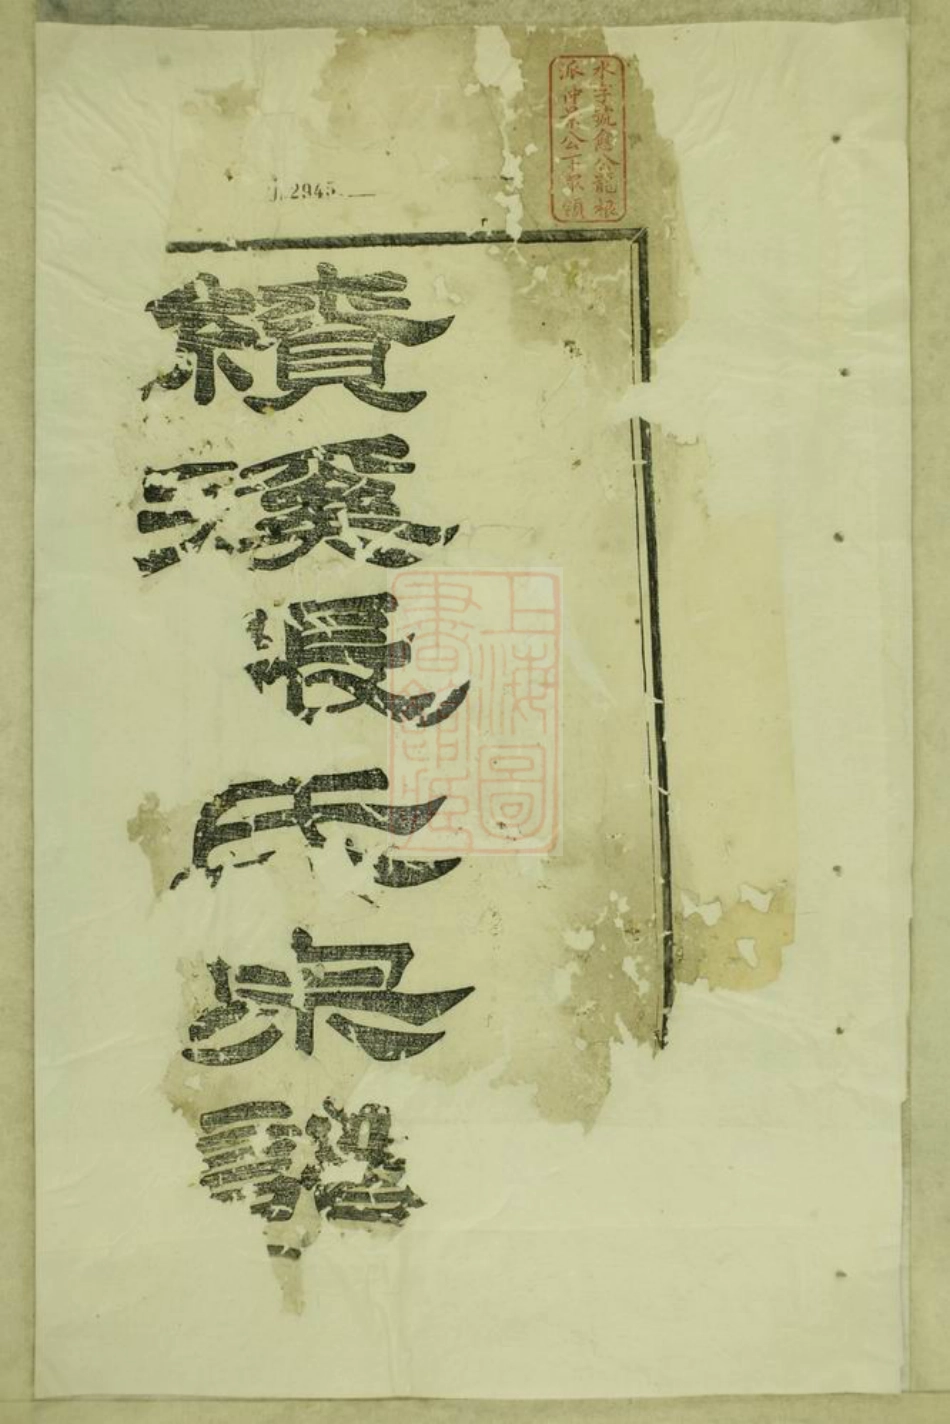 水字號應公龍根
派仲景公下衆領
2945
績溪張氏宗譜
上海圖
書館藏